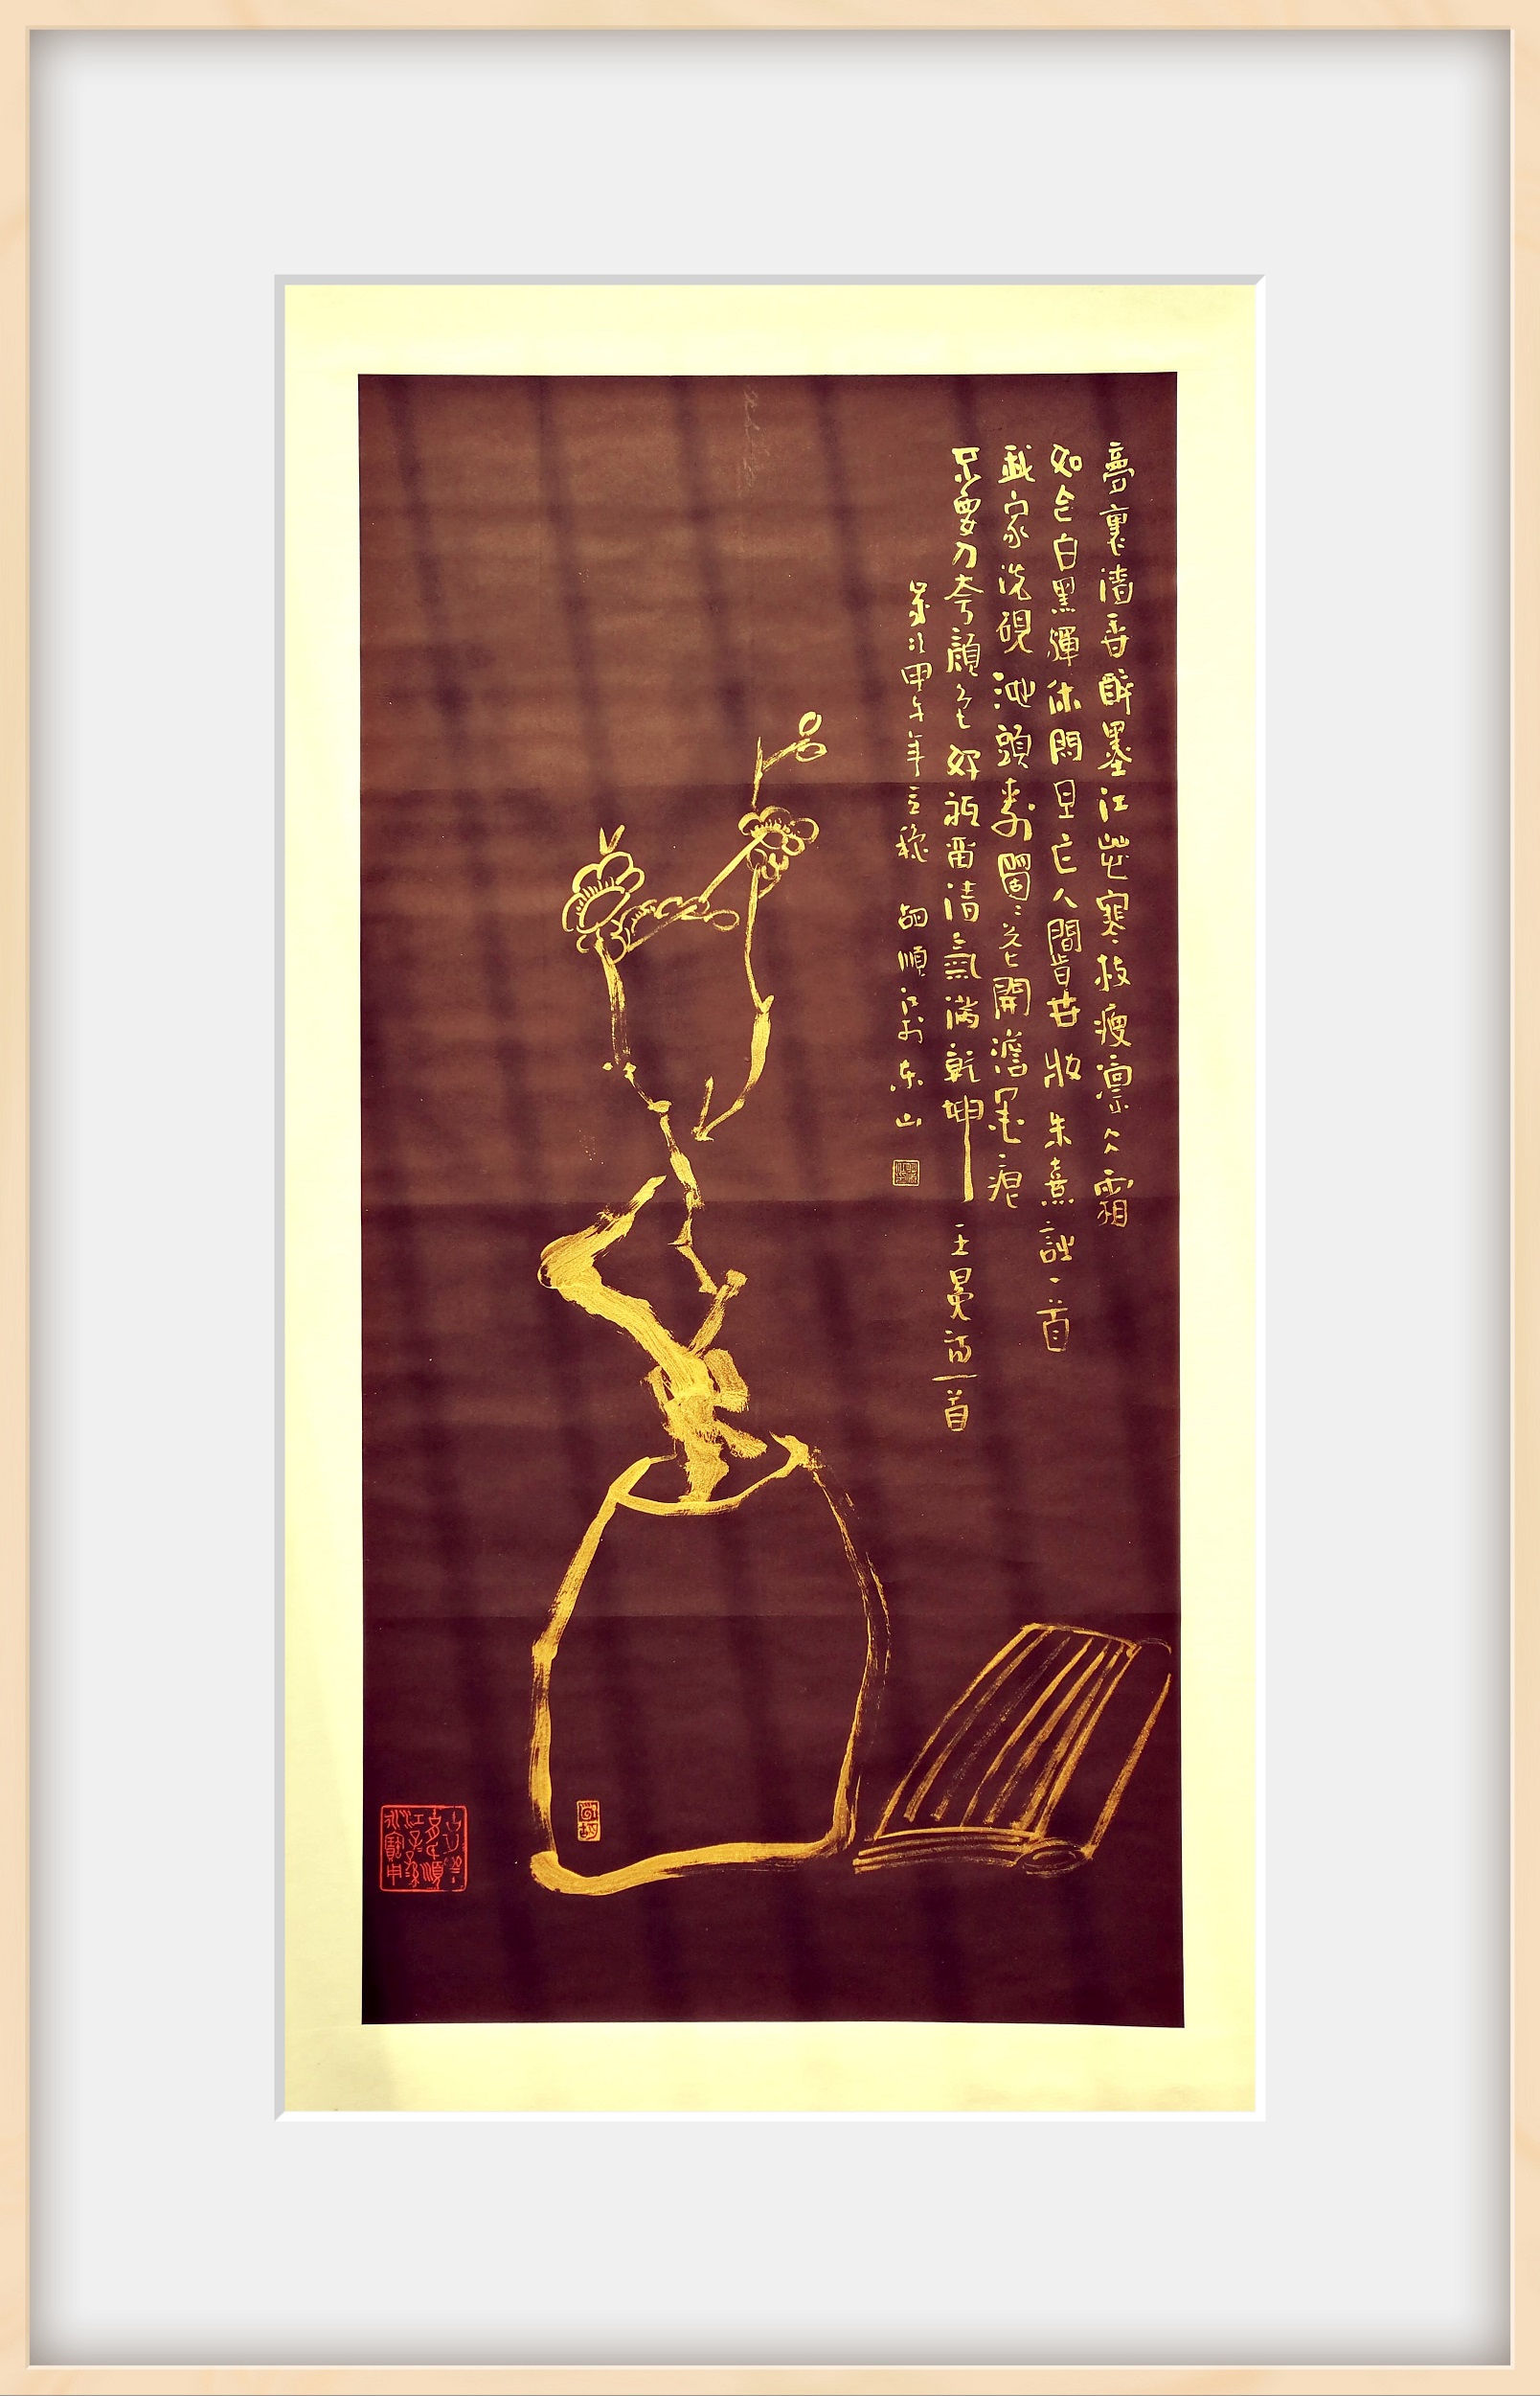 夢裏清香醉墨江蕊寒枝瘦凛仌霜
如今白黑渾休問且作人間時世妝 朱熹詩一首
我家洗硯池頭樹箇箇花開澹墨痕
不要人夸顏色好祗留清氣滿乾坤 王冕詩一首
歲次甲午年立穐 胡順江於东山